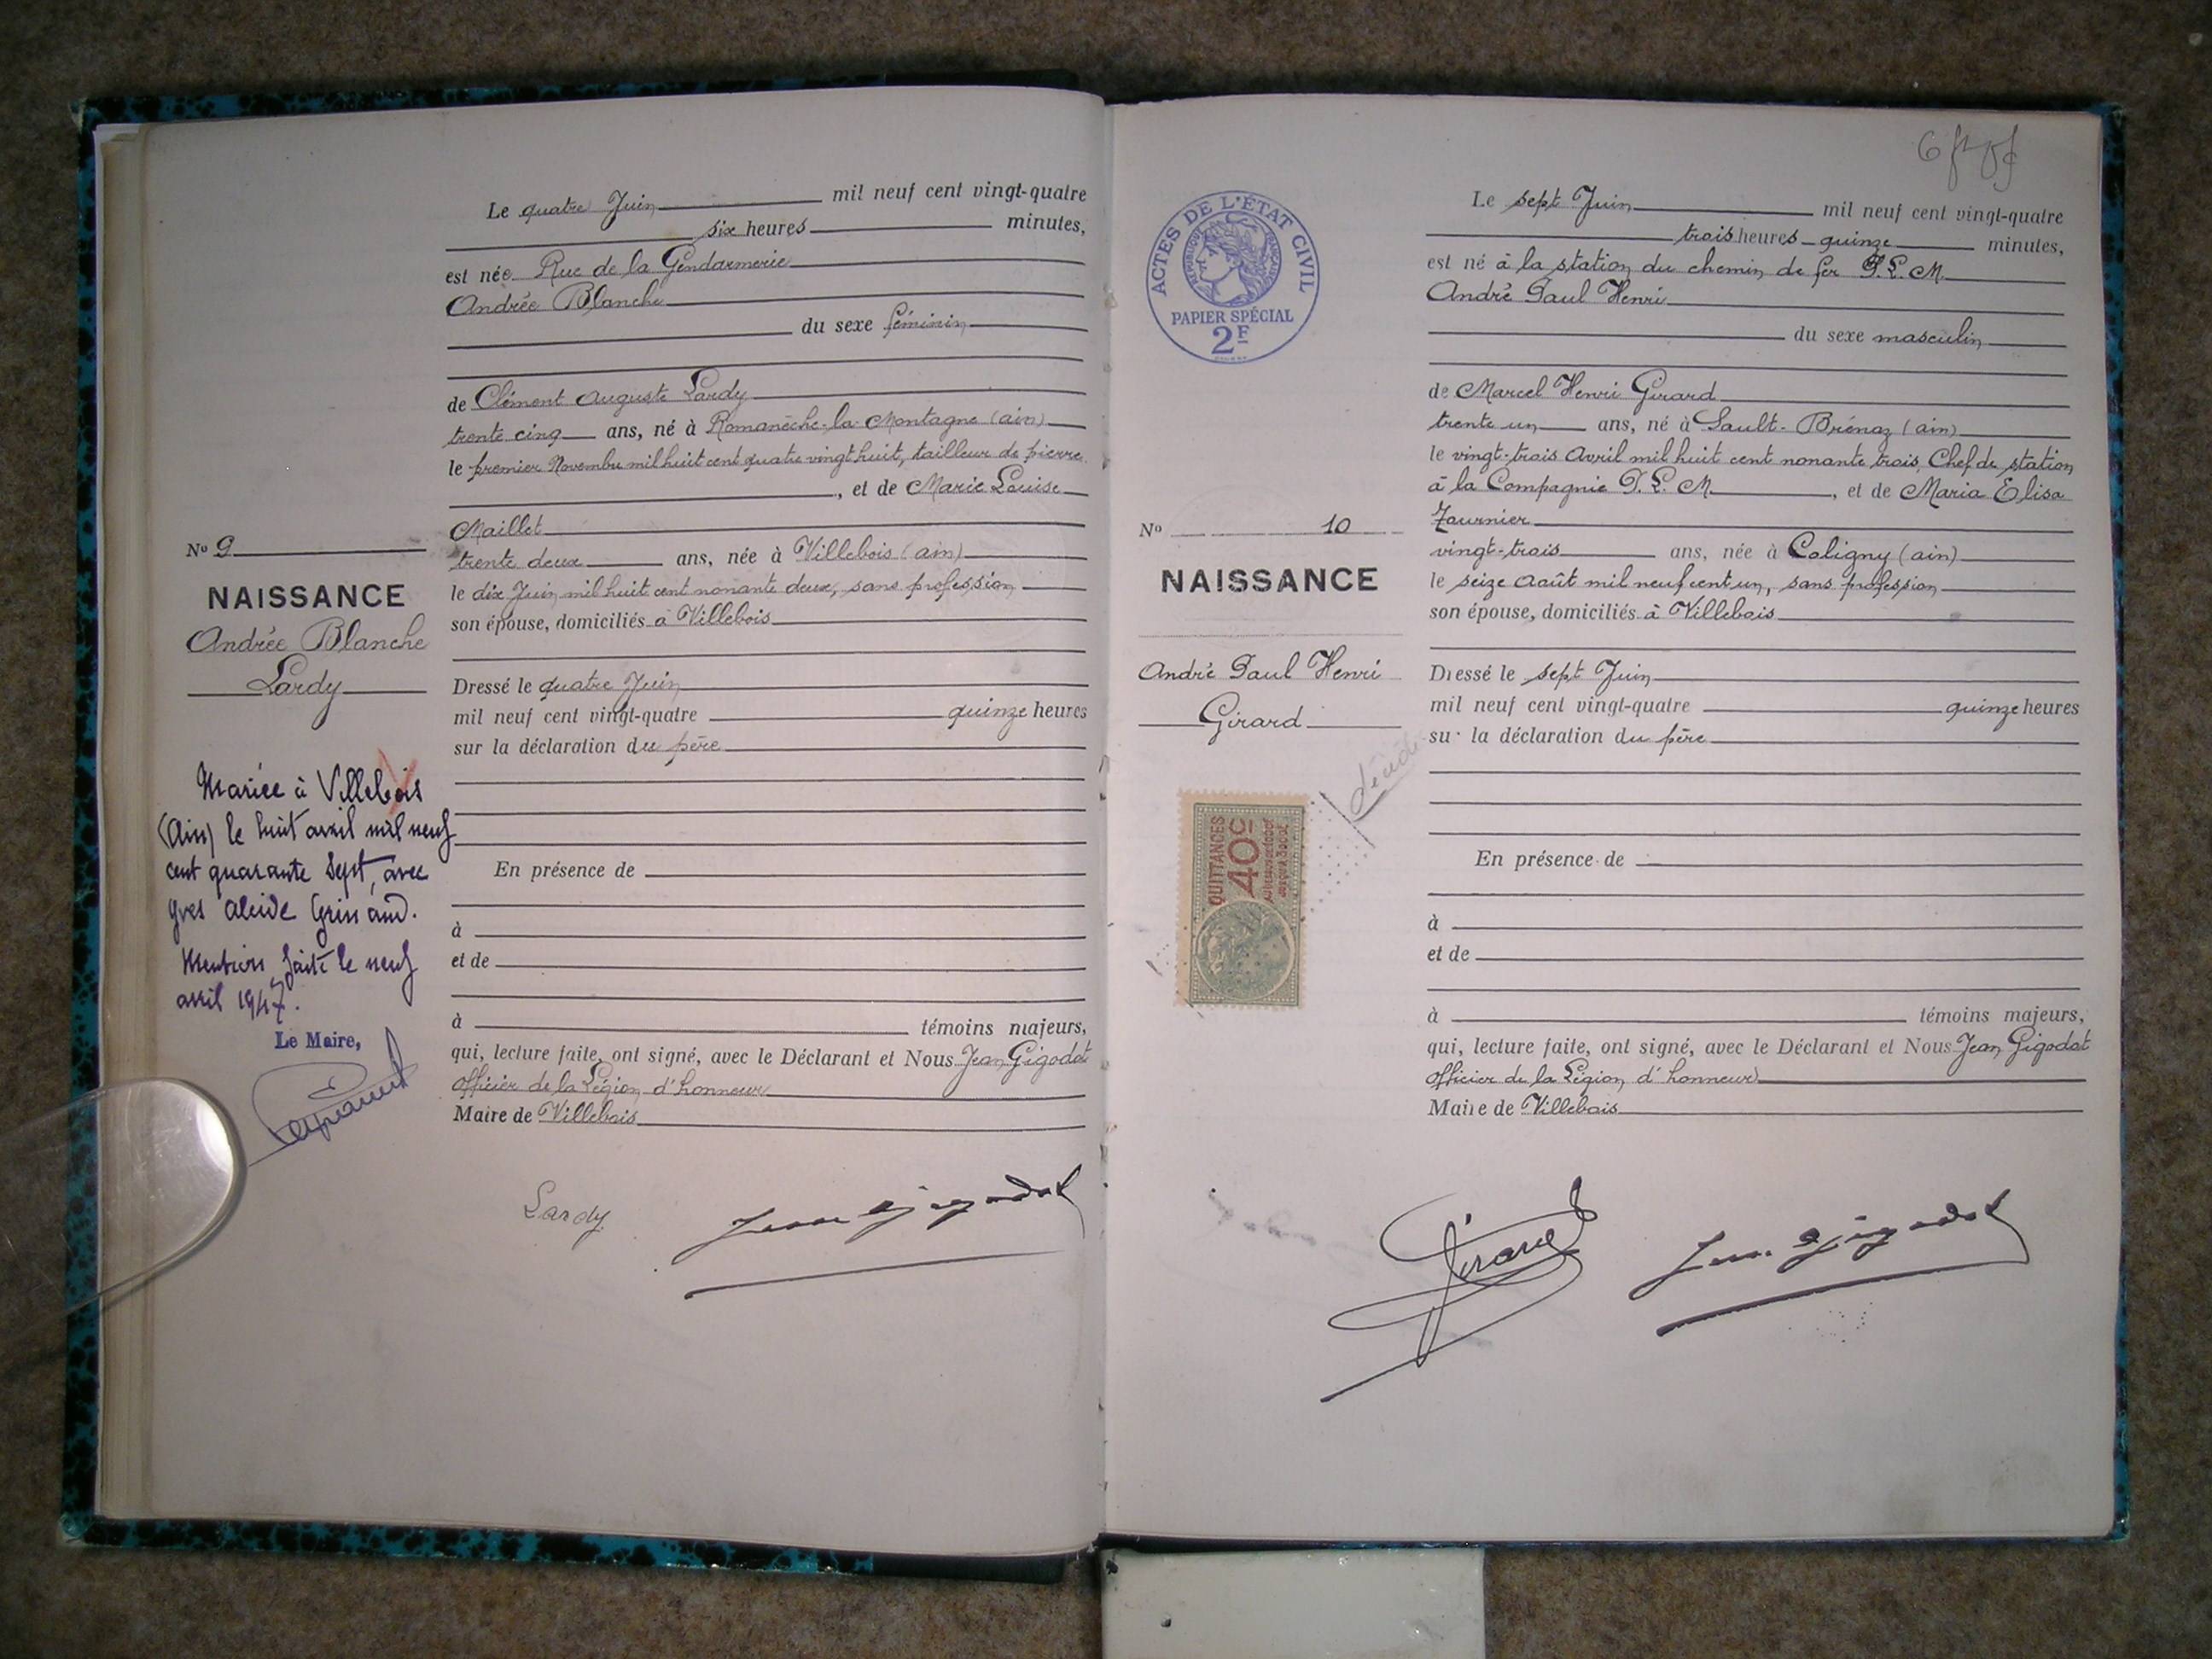 Le quatre Juin mil neuf cent vingt-quatre
six heures minutes,
est née Rue de la Gendarmerie
Andrée Blanche
du sexe féminin
de Clément Auguste Lardy
trente cinq ans, né à Romanèche-la-Montagne (ain)
le premier Novembre mil huit cent quatre vingt huit, tailleur de pierre
, et de Marie Louise
Maillet
trente deux ans, née à Villebois (ain)
le dix Juin mil huit cent nonante deux, sans profession
son épouse, domiciliés à Villebois
Dressé le quatre Juin
mil neuf cent vingt-quatre quinze heures
sur la déclaration du père
En présence de
à
et de
à témoins majeurs,
qui, lecture faite, ont signé, avec le Déclarant et Nous Jean Gigodot
officier de la Légion d'honneur
Maire de Villebois
Lardy
Jean Gigodot
No 9
NAISSANCE
Andrée Blanche
Lardy
Mariée à Villebois
(Ain) le huit avril mil neuf
cent quarante sept, avec
Yves Alcide
Mention faite le neuf
avril 1947.
Le Maire,
ACTES DE L'ÉTAT CIVIL
RÉPUBLIQUE FRANÇAISE
PAPIER SPÉCIAL
2F
No 10
NAISSANCE
André Paul Henri
Girard
QUITTANCES
40c
Le sept Juin mil neuf cent vingt-quatre
trois heures quinze minutes,
est né à la station du chemin de fer P. L. M.
André Paul Henri
du sexe masculin
de Marcel Henri Girard
trente un ans, né à Sault-Brénaz (ain)
le vingt-trois Avril mil huit cent nonante trois, Chef de station
à la Compagnie P. L. M. , et de Maria Elisa
vingt-trois ans, née à Coligny (ain)
le seize Août mil neuf cent un, sans profession
son épouse, domiciliés à Villebois
Dressé le sept Juin
mil neuf cent vingt-quatre quinze heures
sur la déclaration du père
En présence de
à
et de
à témoins majeurs,
qui, lecture faite, ont signé, avec le Déclarant et Nous Jean Gigodot
officier de la Légion d'honneur
Maire de Villebois
Girard
Jean Gigodot